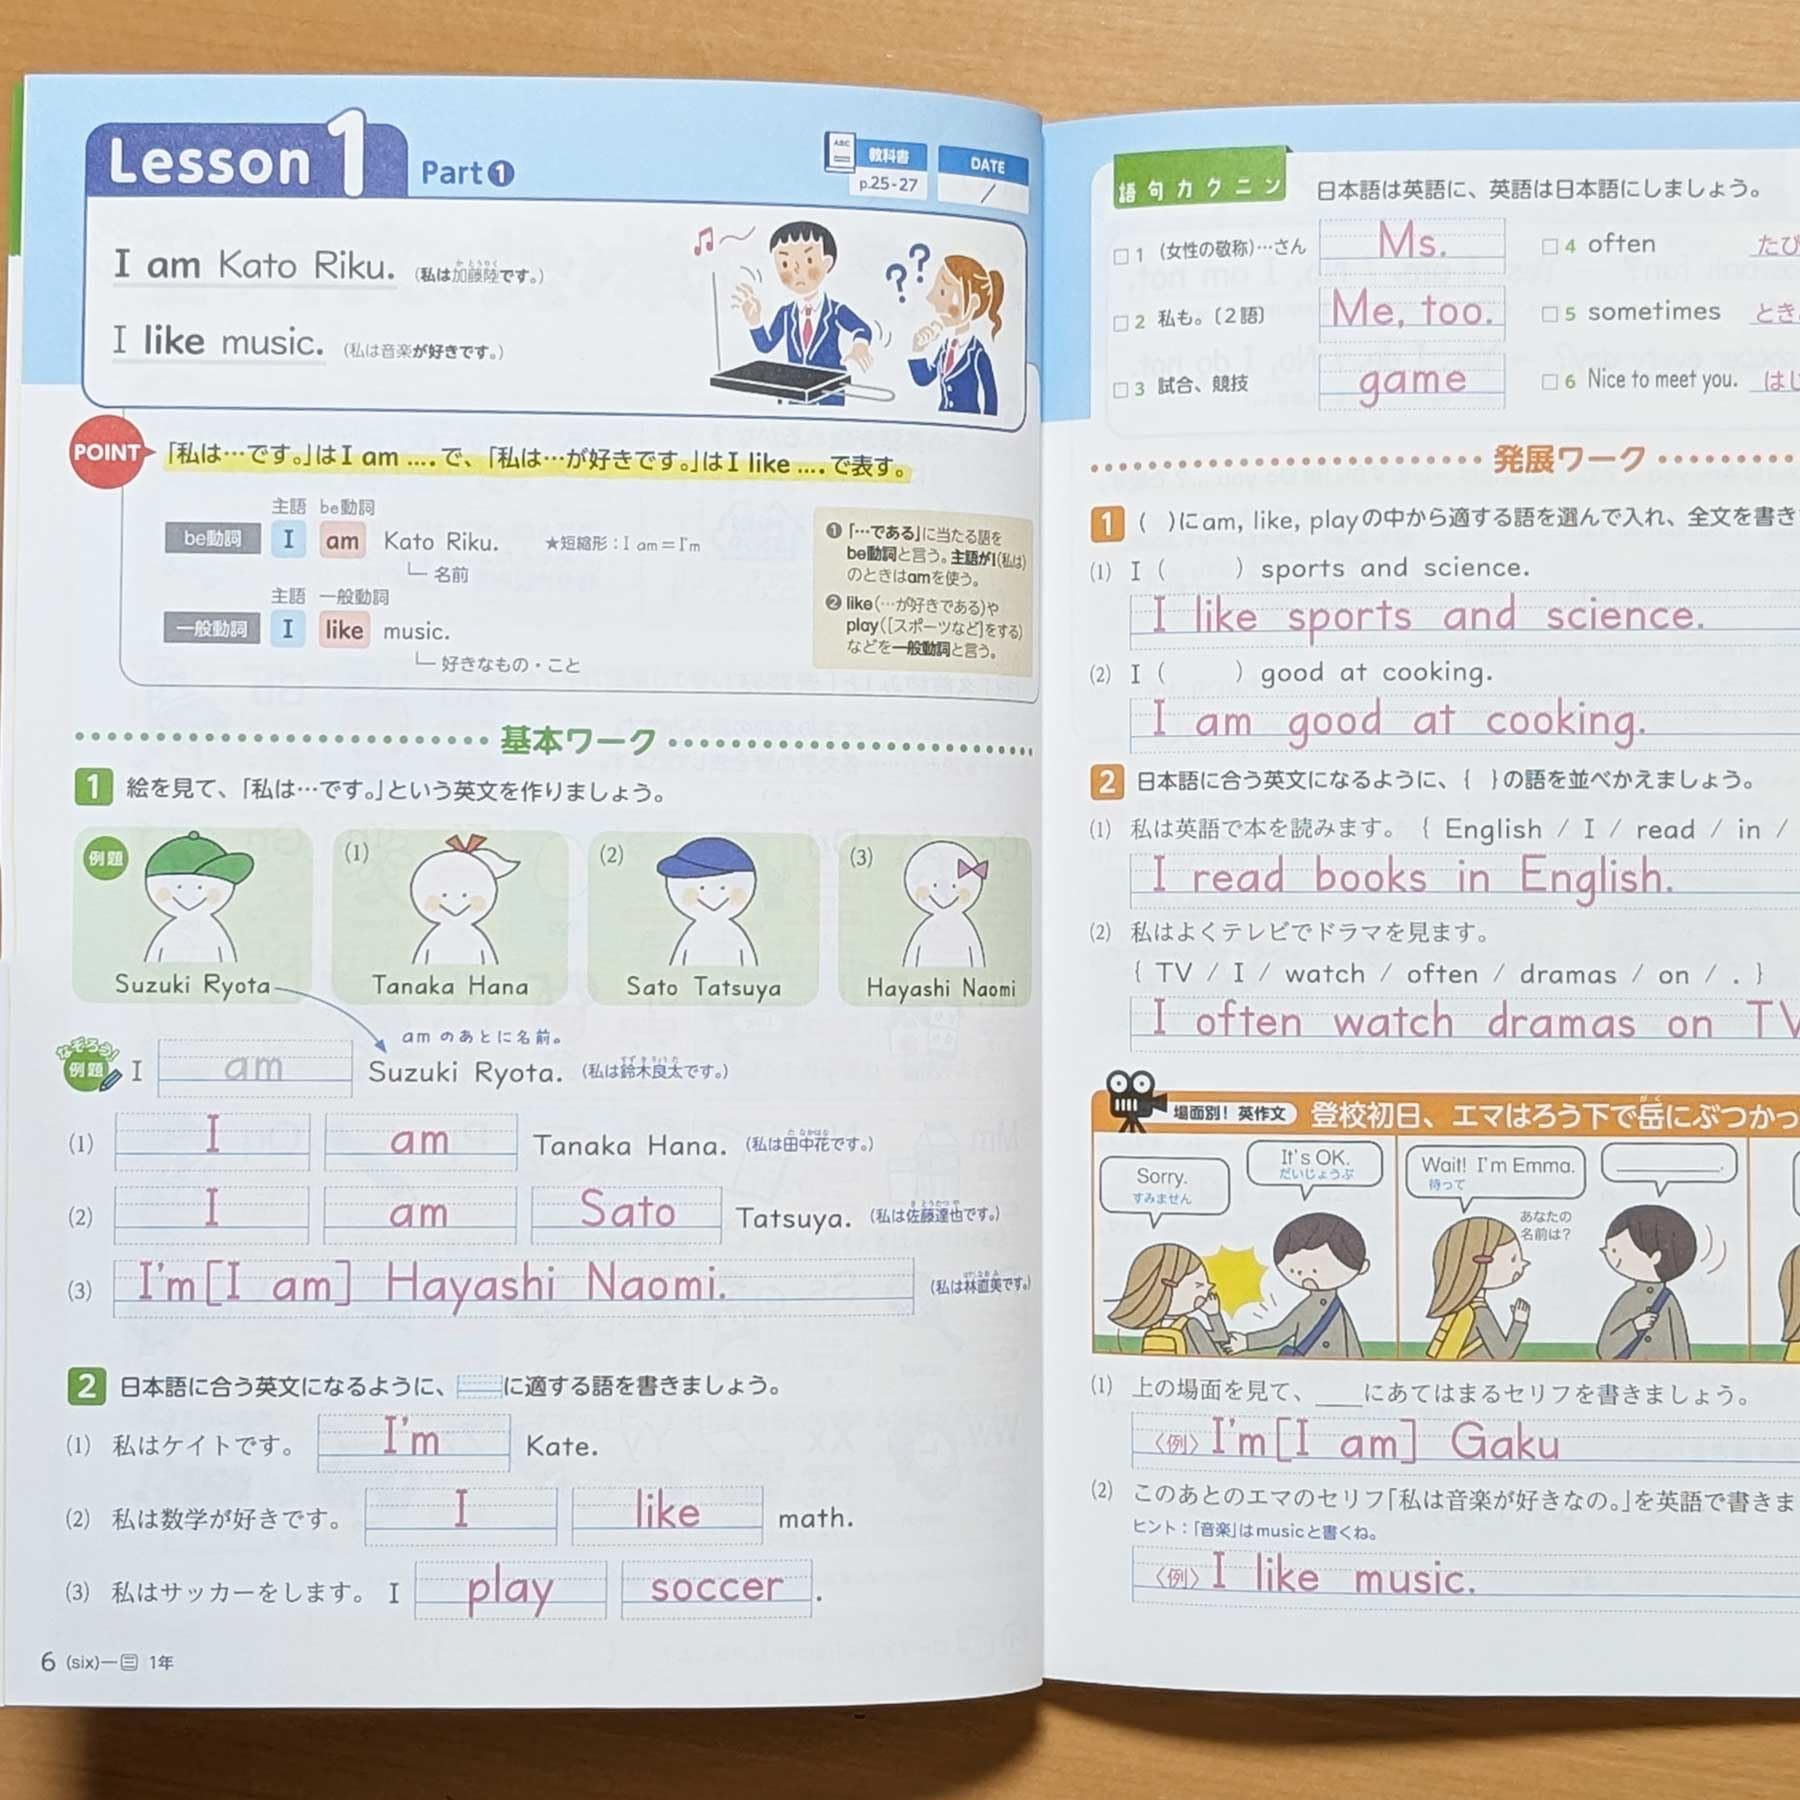 Lesson 1 Part❶
教科書 p.25-27
DATE
/
I am Kato Riku. (私は加藤陸です。)
I like music. (私は音楽が好きです。)
POINT 「私は…です。」はI am ….で、「私は…が好きです。」はI like ….で表す。
主語 be動詞
be動詞 I am Kato Riku. ★短縮形：I am＝I'm
名前
主語 一般動詞
一般動詞 I like music.
好きなもの・こと
❶「…である」に当たる語を
be動詞と言う。主語がI(私は)
のときはamを使う。
❷like(…が好きである)や
play([スポーツなど]をする)
などを一般動詞と言う。
基本ワーク
1 絵を見て、「私は…です。」という英文を作りましょう。
例題 (1) (2) (3)
Suzuki Ryota Tanaka Hana Sato Tatsuya Hayashi Naomi
amのあとに名前。
なぞろう! 例題 I am Suzuki Ryota. (私は鈴木良太です。)
(1) I am Tanaka Hana. (私は田中花です。)
(2) I am Sato Tatsuya. (私は佐藤達也です。)
(3) I'm[I am] Hayashi Naomi. (私は林直美です。)
2 日本語に合う英文になるように、に適する語を書きましょう。
(1) 私はケイトです。 I'm Kate.
(2) 私は数学が好きです。 I like math.
(3) 私はサッカーをします。 I play soccer.
6 (six)―三 1年
語句カクニン 日本語は英語に、英語は日本語にしましょう。
□1 (女性の敬称)…さん Ms. □4 often たび
□2 私も。〔2語〕 Me, too. □5 sometimes とき
□3 試合、競技 game □6 Nice to meet you. はじ
発展ワーク
1 ( )にam, like, playの中から適する語を選んで入れ、全文を書き
(1) I ( ) sports and science.
I like sports and science.
(2) I ( ) good at cooking.
I am good at cooking.
2 日本語に合う英文になるように、{ }の語を並べかえましょう。
(1) 私は英語で本を読みます。 { English / I / read / in /
I read books in English.
(2) 私はよくテレビでドラマを見ます。
{ TV / I / watch / often / dramas / on / . }
I often watch dramas on TV
場面別! 英作文 登校初日、エマはろう下で岳にぶつかっ
Sorry.
すみません
It's OK.
だいじょうぶ
Wait! I'm Emma.
待って
あなたの
名前は?
(1) 上の場面を見て、___にあてはまるセリフを書きましょう。
〈例〉I'm[I am] Gaku
(2) このあとのエマのセリフ「私は音楽が好きなの。」を英語で書きま
ヒント：「音楽」はmusicと書くね。
〈例〉I like music.